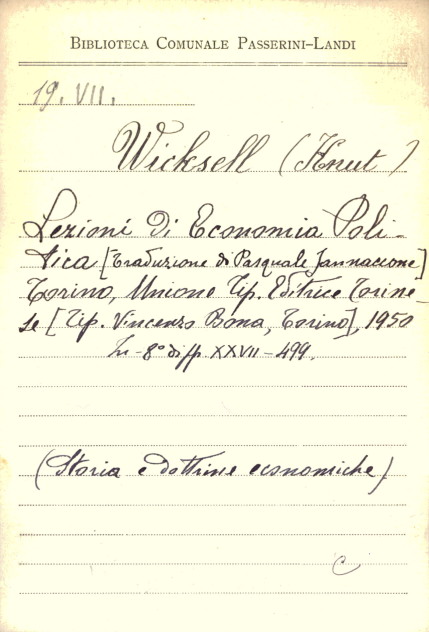 BIBLIOTECA COMUNALE PASSERINI-LANDI
19. VII.
Wicksell (Knut)
Lezioni di Economia Poli-
tica [Traduzione di Pasquale Jannaccone]
Torino, Unione Tip. Editrice Torine-
se [Tip. Vincenzo Bona, Torino], 1950
In-8° di pp. XXVII-499.
(Storia e dottrine economiche)
C